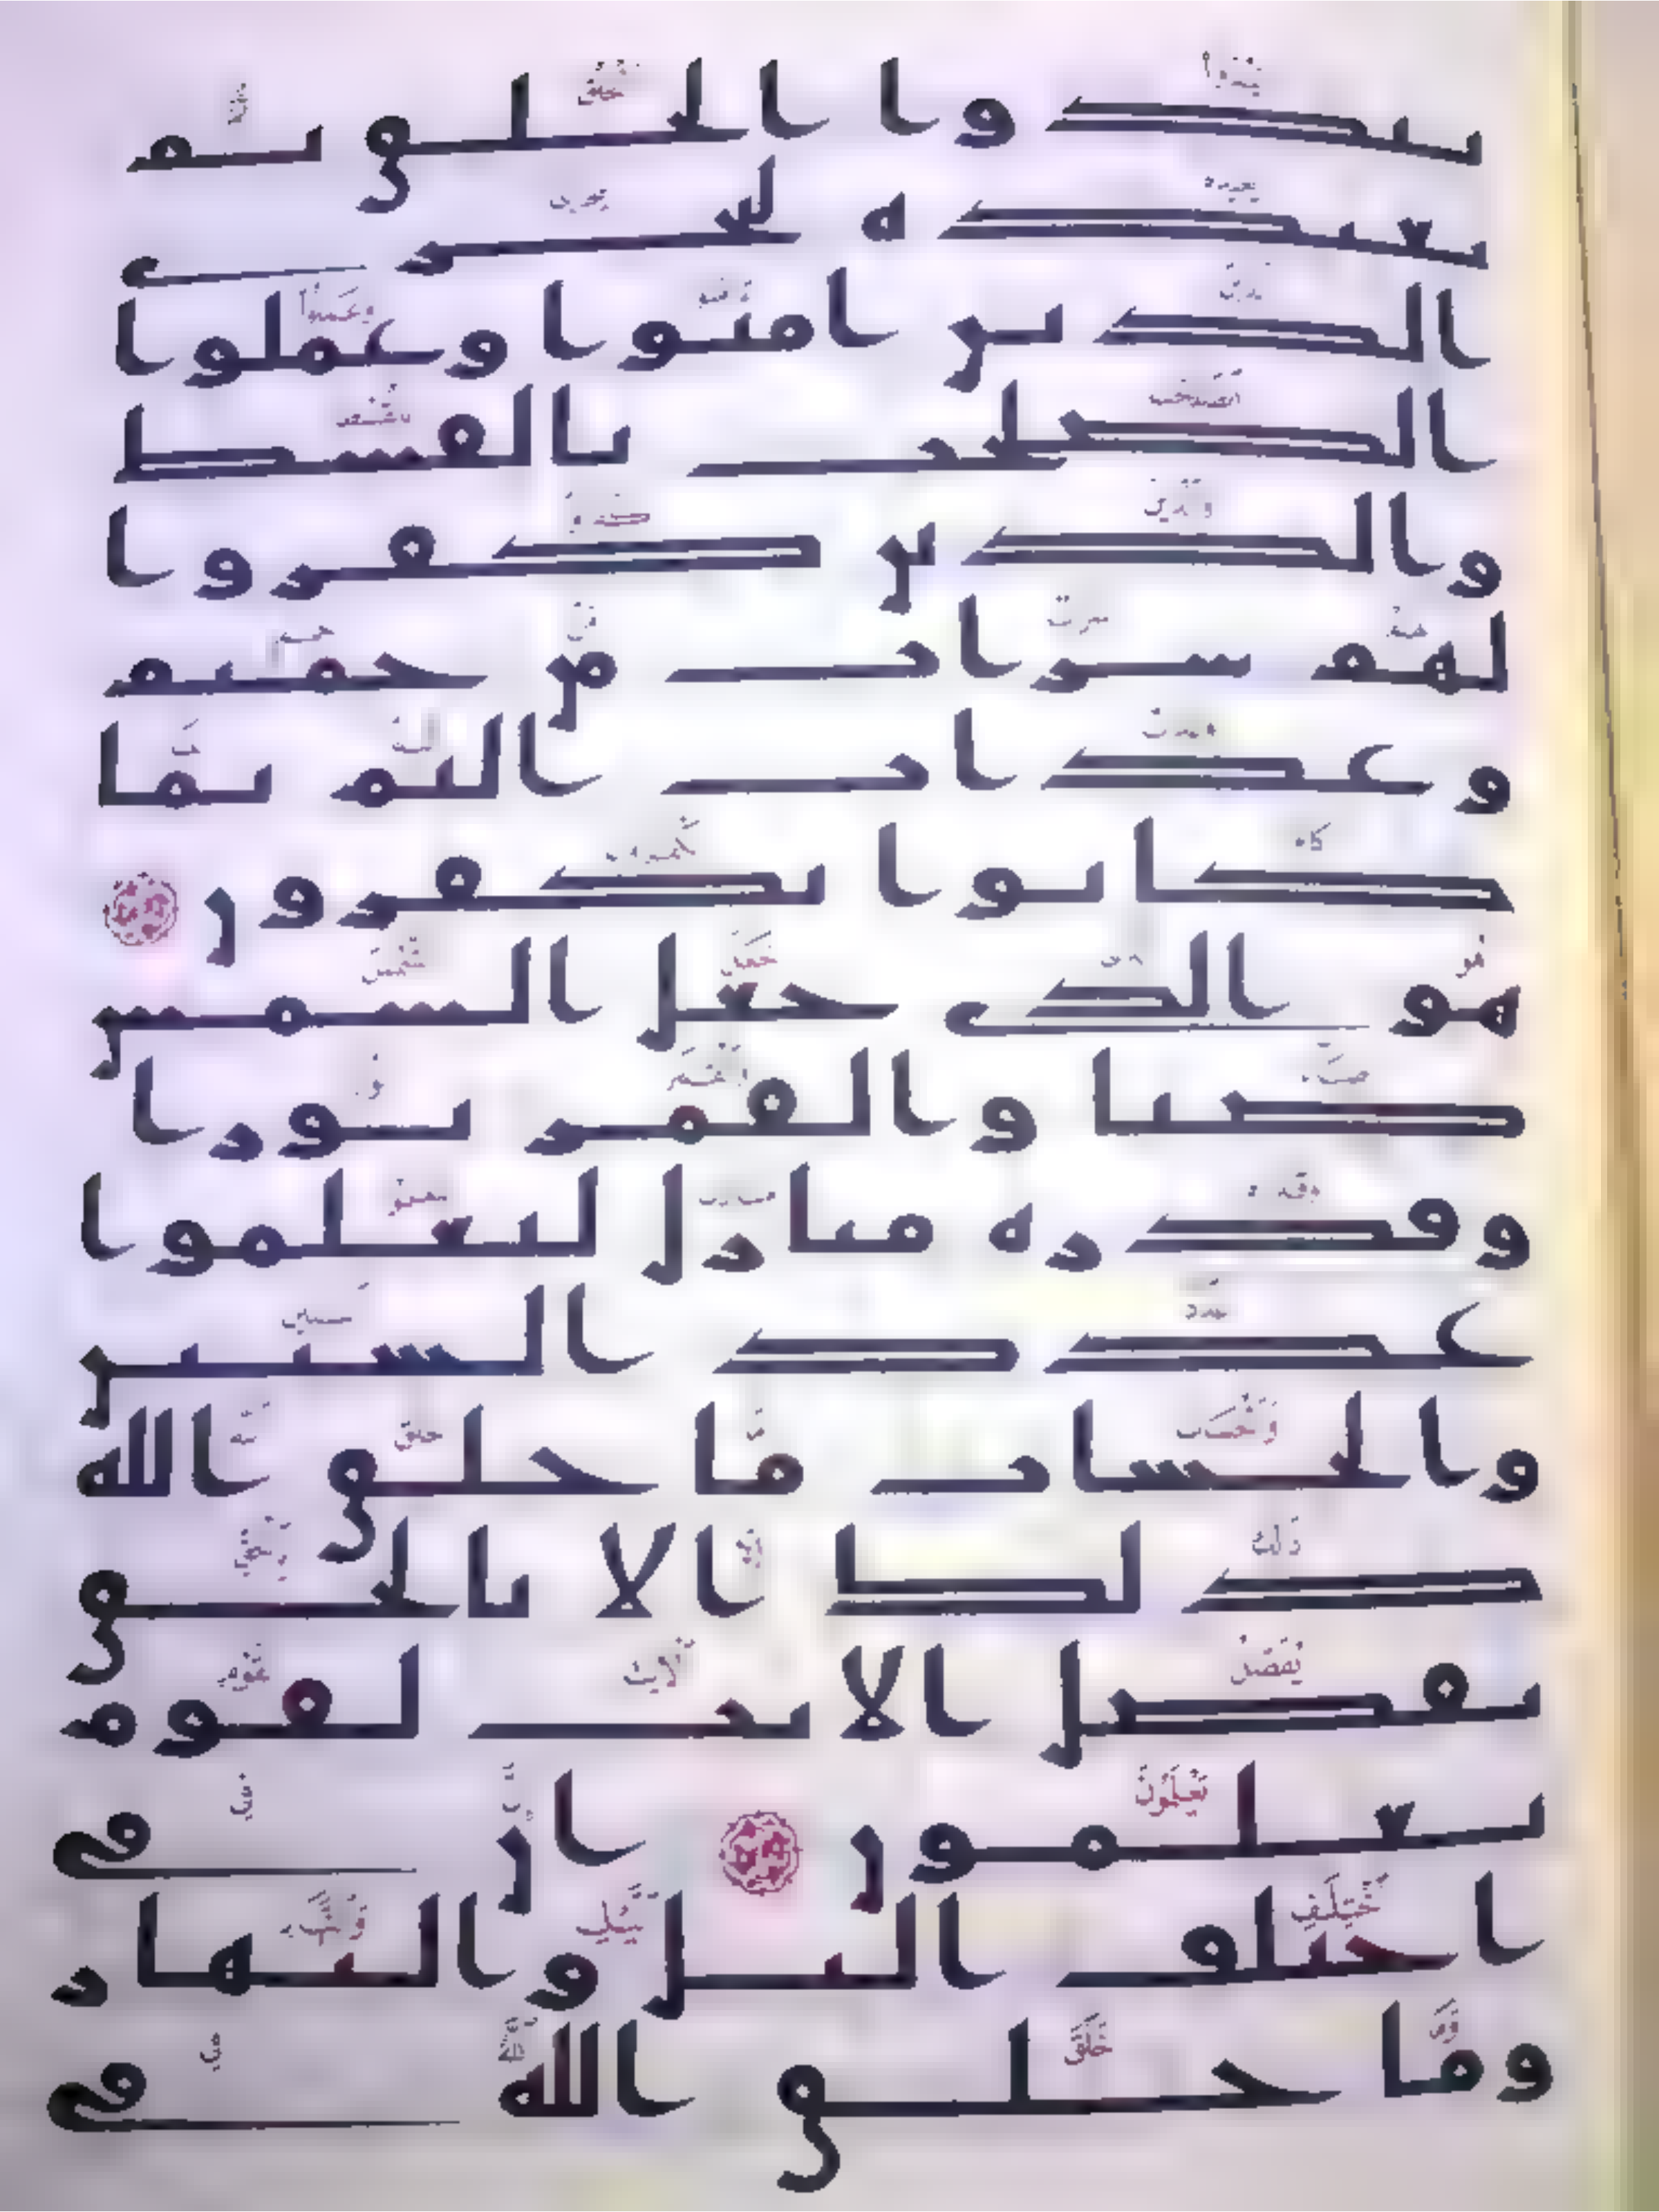 يبدوا الخلق ثم
يعيده ليجزي
الذين امنوا وعملوا
الصلحت بالقسط
والذين كفروا
لهم شراب من حميم
وعذاب اليم بما
كانوا يكفرون
هو الذي جعل الشمس
ضيا والقمر نورا
وقدره منازل لتعلموا
عدد السنين
والحساب ما خلق الله
ذلك الا بالحق
يفصل الايت لقوم
يعلمون ان في
اختلف اليل والنهار
وما خلق الله في